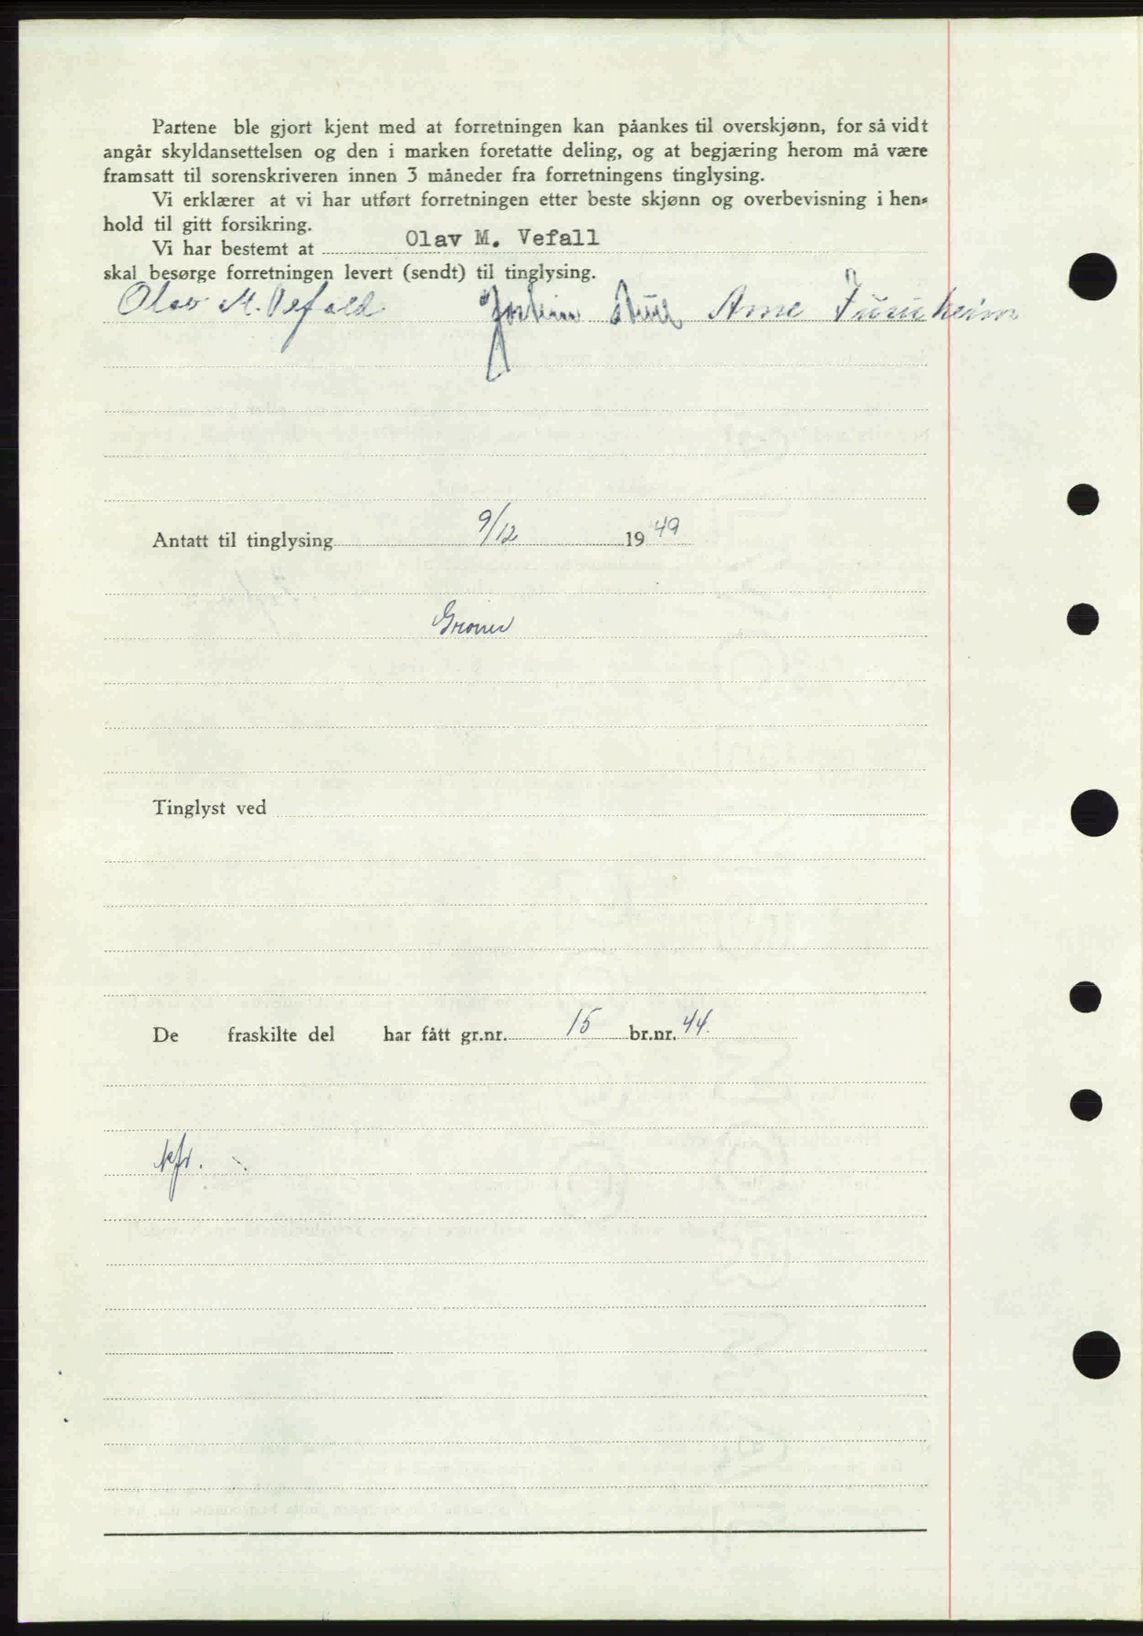 Partene ble gjort kjent med at forretningen kan påankes til overskjønn, for så vidt
angår skyldansettelsen og den i marken foretatte deling, og at begjæring herom må være
framsatt til sorenskriveren innen 3 måneder fra forretningens tinglysing.
Vi erklærer at vi har utført forretningen etter beste skjønn og overbevisning i hen-
hold til gitt forsikring.
Vi har bestemt at Olav M. Vefall
skal besørge forretningen levert (sendt) til tinglysing.
Olav M. Vefald Arne Furuheim
Antatt til tinglysing 9/12 1949
Tinglyst ved
De fraskilte del har fått gr.nr. 15 br.nr. 44.